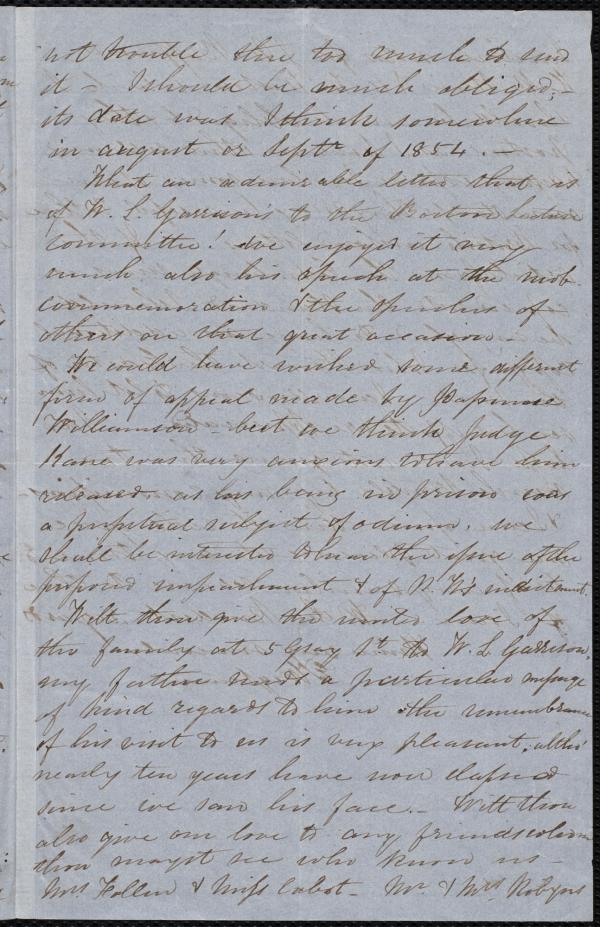 not trouble thee too much to send
it – I should be much obliged, –
its date was I think somewhere
in august or Septr of 1854. –
What an admirable letter that is
of W. L. Garrison's to the Boston Lecture
Committee! We enjoyed it very
much also his speech at the mob
commemoration & the speeches of
others on that great occasion –
We could have wished some different
form of appeal made by Passmore
Williamson – but we think Judge
Kane was very anxious to have him
released, as his being in prison was
a perpetual subject of odium. we
shall be interested to hear the issue of the
proposed impeachment & of P. W's indictment.
Wilt thou give the united love of
the family at 5 Gray St. to W. L. Garrison,
my father sends a particular message
of kind regards to him & the remembrance
of his visit to us is very pleasant, altho'
nearly ten years have now elapsed
since we saw his face. – Wilt thou
also give our love to any friends whom
thou mayst see who know us –
Mrs Follen & Miss Cabot – Mr. & Mrs